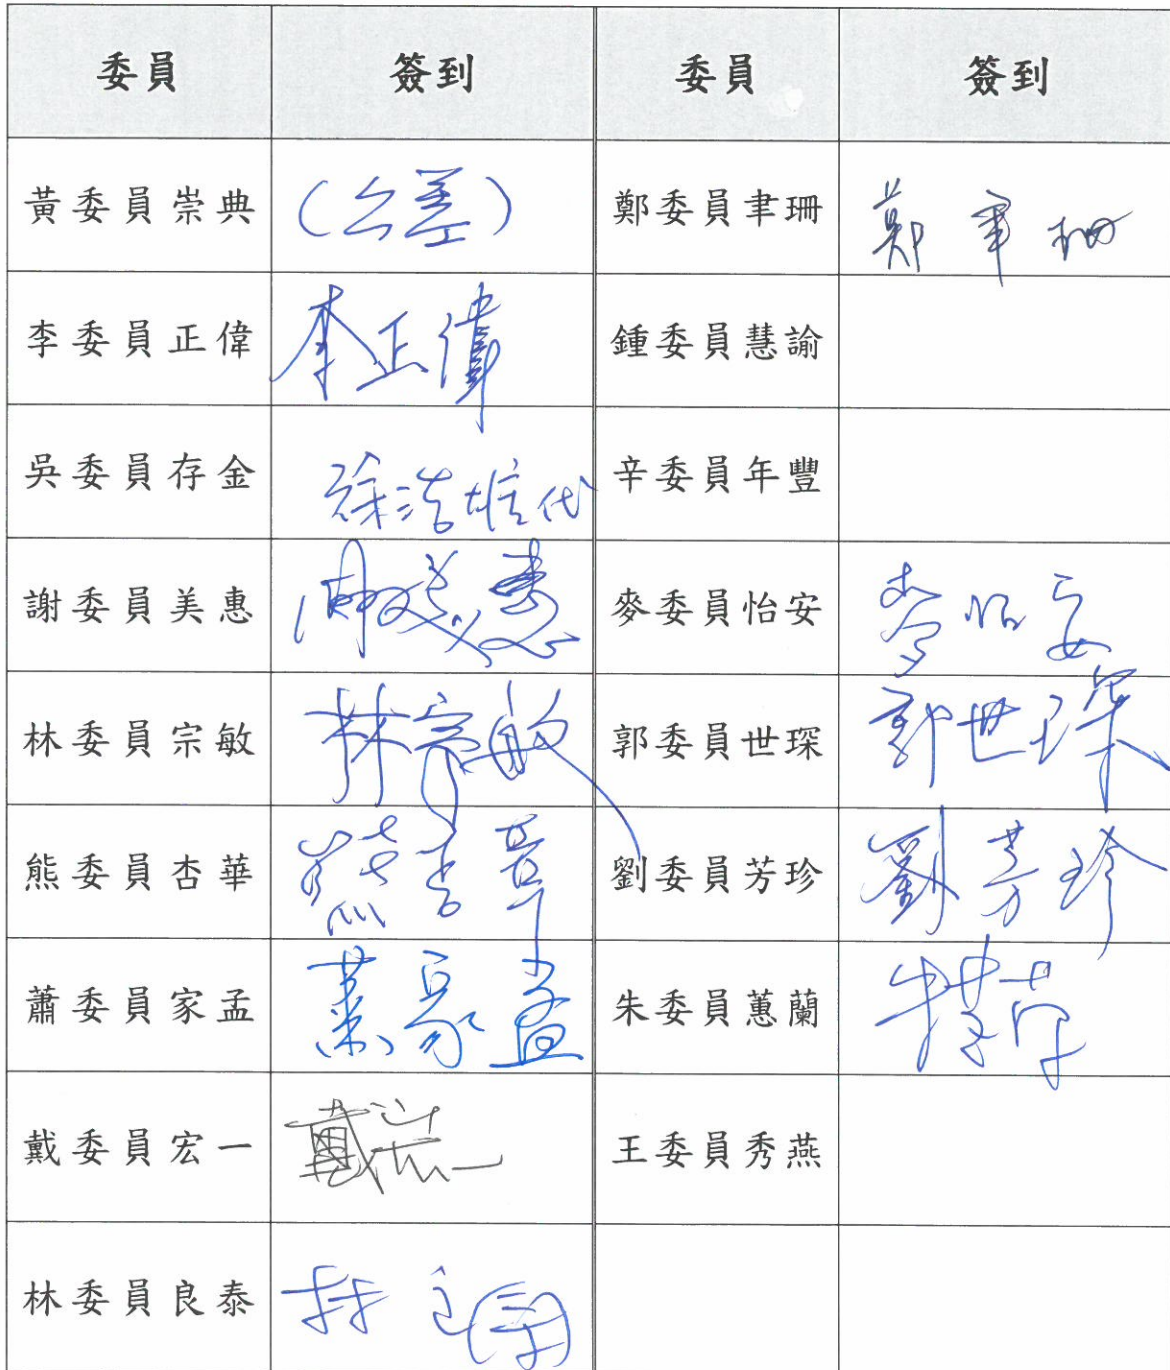 委員 簽到 委員 簽到
黃委員崇典 (公差) 鄭委員聿珊 鄭聿珊
李委員正偉 李正偉 鍾委員慧諭
吳委員存金 代 辛委員年豐
謝委員美惠 麥委員怡安 麥怡安
林委員宗敏 林宗敏 郭委員世琛 郭世琛
熊委員杏華 熊杏華 劉委員芳珍 劉芳珍
蕭委員家孟 家孟 朱委員蕙蘭
戴委員宏一 戴宏一 王委員秀燕
林委員良泰 林良